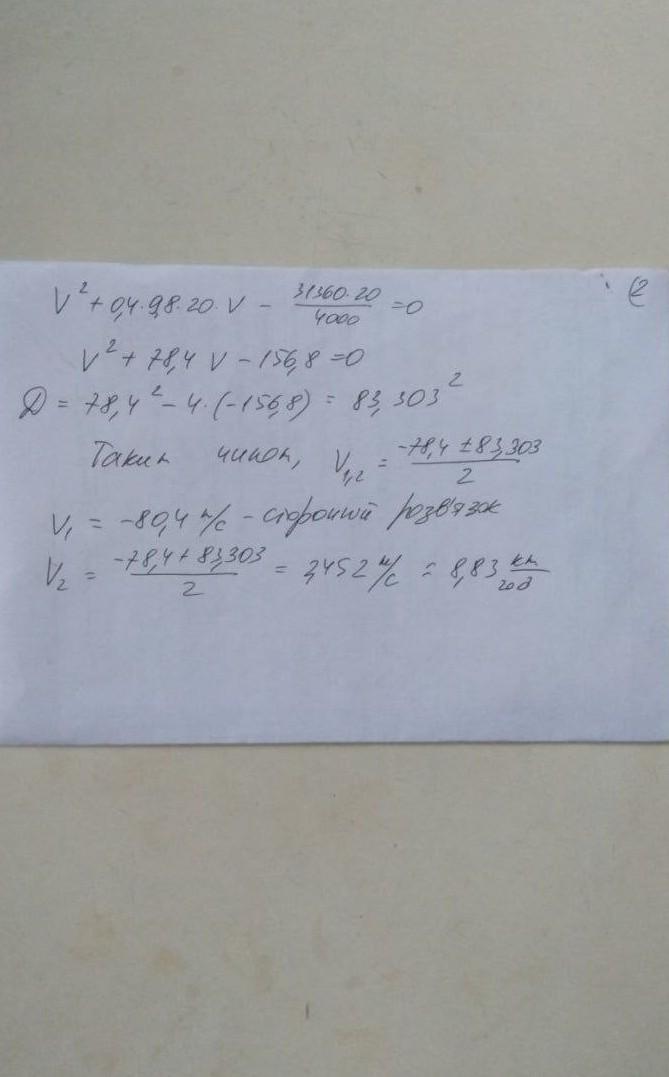 ②
V² + 0,4·9,8·20·V − 31360·20/4000 = 0
V² + 78,4 V − 156,8 = 0
D = 78,4² − 4·(−156,8) = 83,303²
Таким чином, V₁,₂ = −78,4 ± 83,303/2
V₁ = −80,4 м/с - сторонній розв'язок
V₂ = −78,4 + 83,303/2 = 2,452 м/с = 8,83 км/год